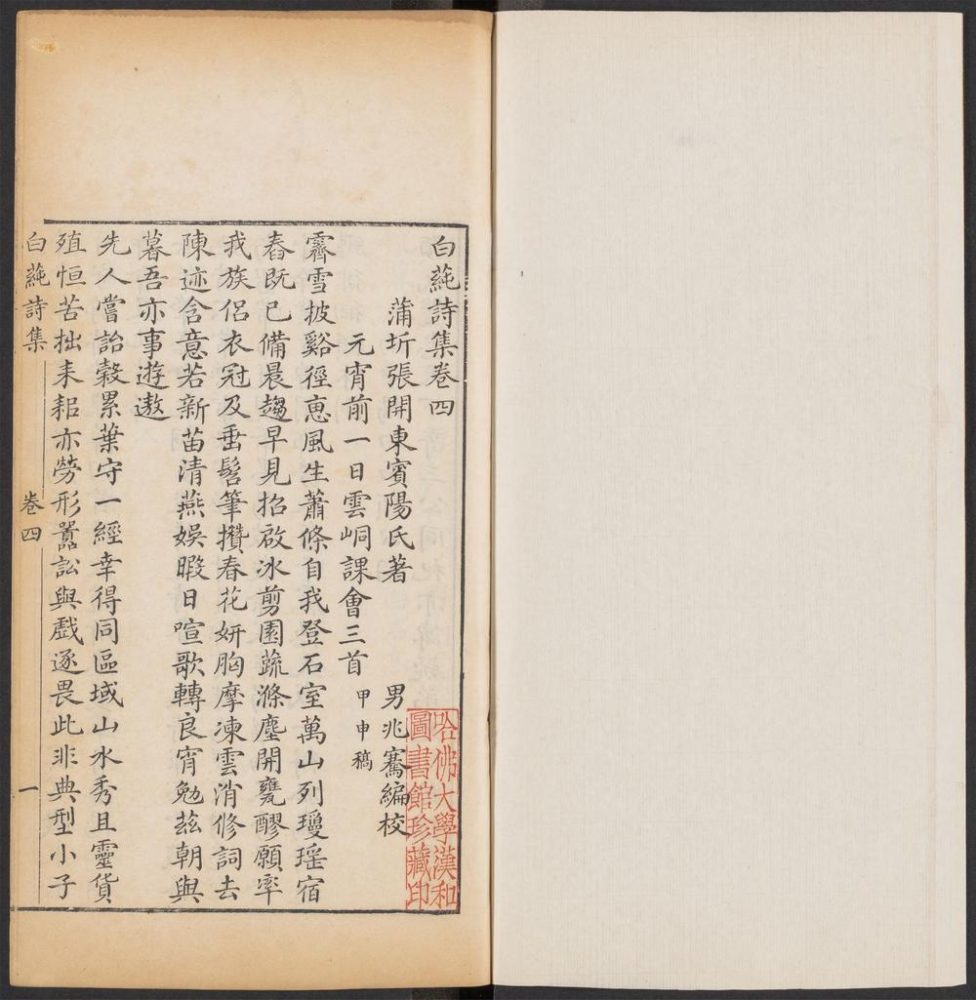 白蒓詩集卷四
蒲圻張開東賓陽氏著 男兆騫編校
元宵前一日雲峒課會三首 甲申稿
霽雪披谿徑恵風生蕭條自我登石室萬山列瓊瑶宿
舂既已備晨趨早見招啟冰剪園蔬滌塵開甕醪願率
我族侶衣冠及垂髫筆攢春花妍胸摩凍雲消修詞去
陳迹含意若新苗清燕娛暇日喧歌轉良宵勉茲朝與
暮吾亦事遊遨
先人嘗詒穀累葉守一經幸得同區域山水秀且靈貨
殖恒苦拙耒耜亦勞形嚚訟與戲逐畏此非典型小子
白蒓詩集 卷四 一
哈佛大學漢和
圖書館珍藏印